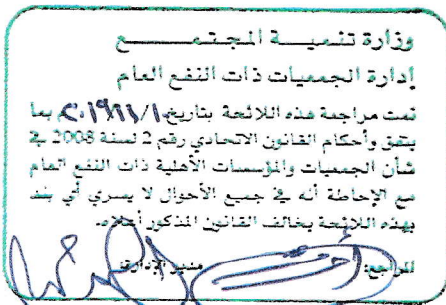 وزارة تنميـــة المجتمـــــع
إدارة الجمعيات ذات النفع العام
تمت مراجعة هذه اللائحة بتاريخ م بما
يتفق وأحكام القانون الاتحادي رقم 2 لسنة 2008 في
شأن الجمعيات والمؤسسات الأهلية ذات النفع العام
مع الإحاطة أنه في جميع الأحوال لا يسري أي بند
بهذه اللائحة يخالف القانون المذكور أعلاه.
المراجع: مدير الإدارة: